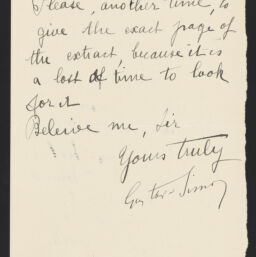 Please, another time, to
give the exact page of
the extract, because it is
a lost of time to look
for it
Beleive me, Sir
Yours truly
Gustave Simon